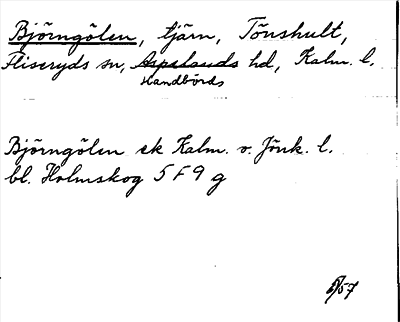 Björngölen, tjärn, Tönshult,
Fliseryds sn, Aspelands hd, Kalm. l.
Handbörds
Björngölen ek Kalm. o. Jönk. l.
bl. Holmskog 5 F 9 g